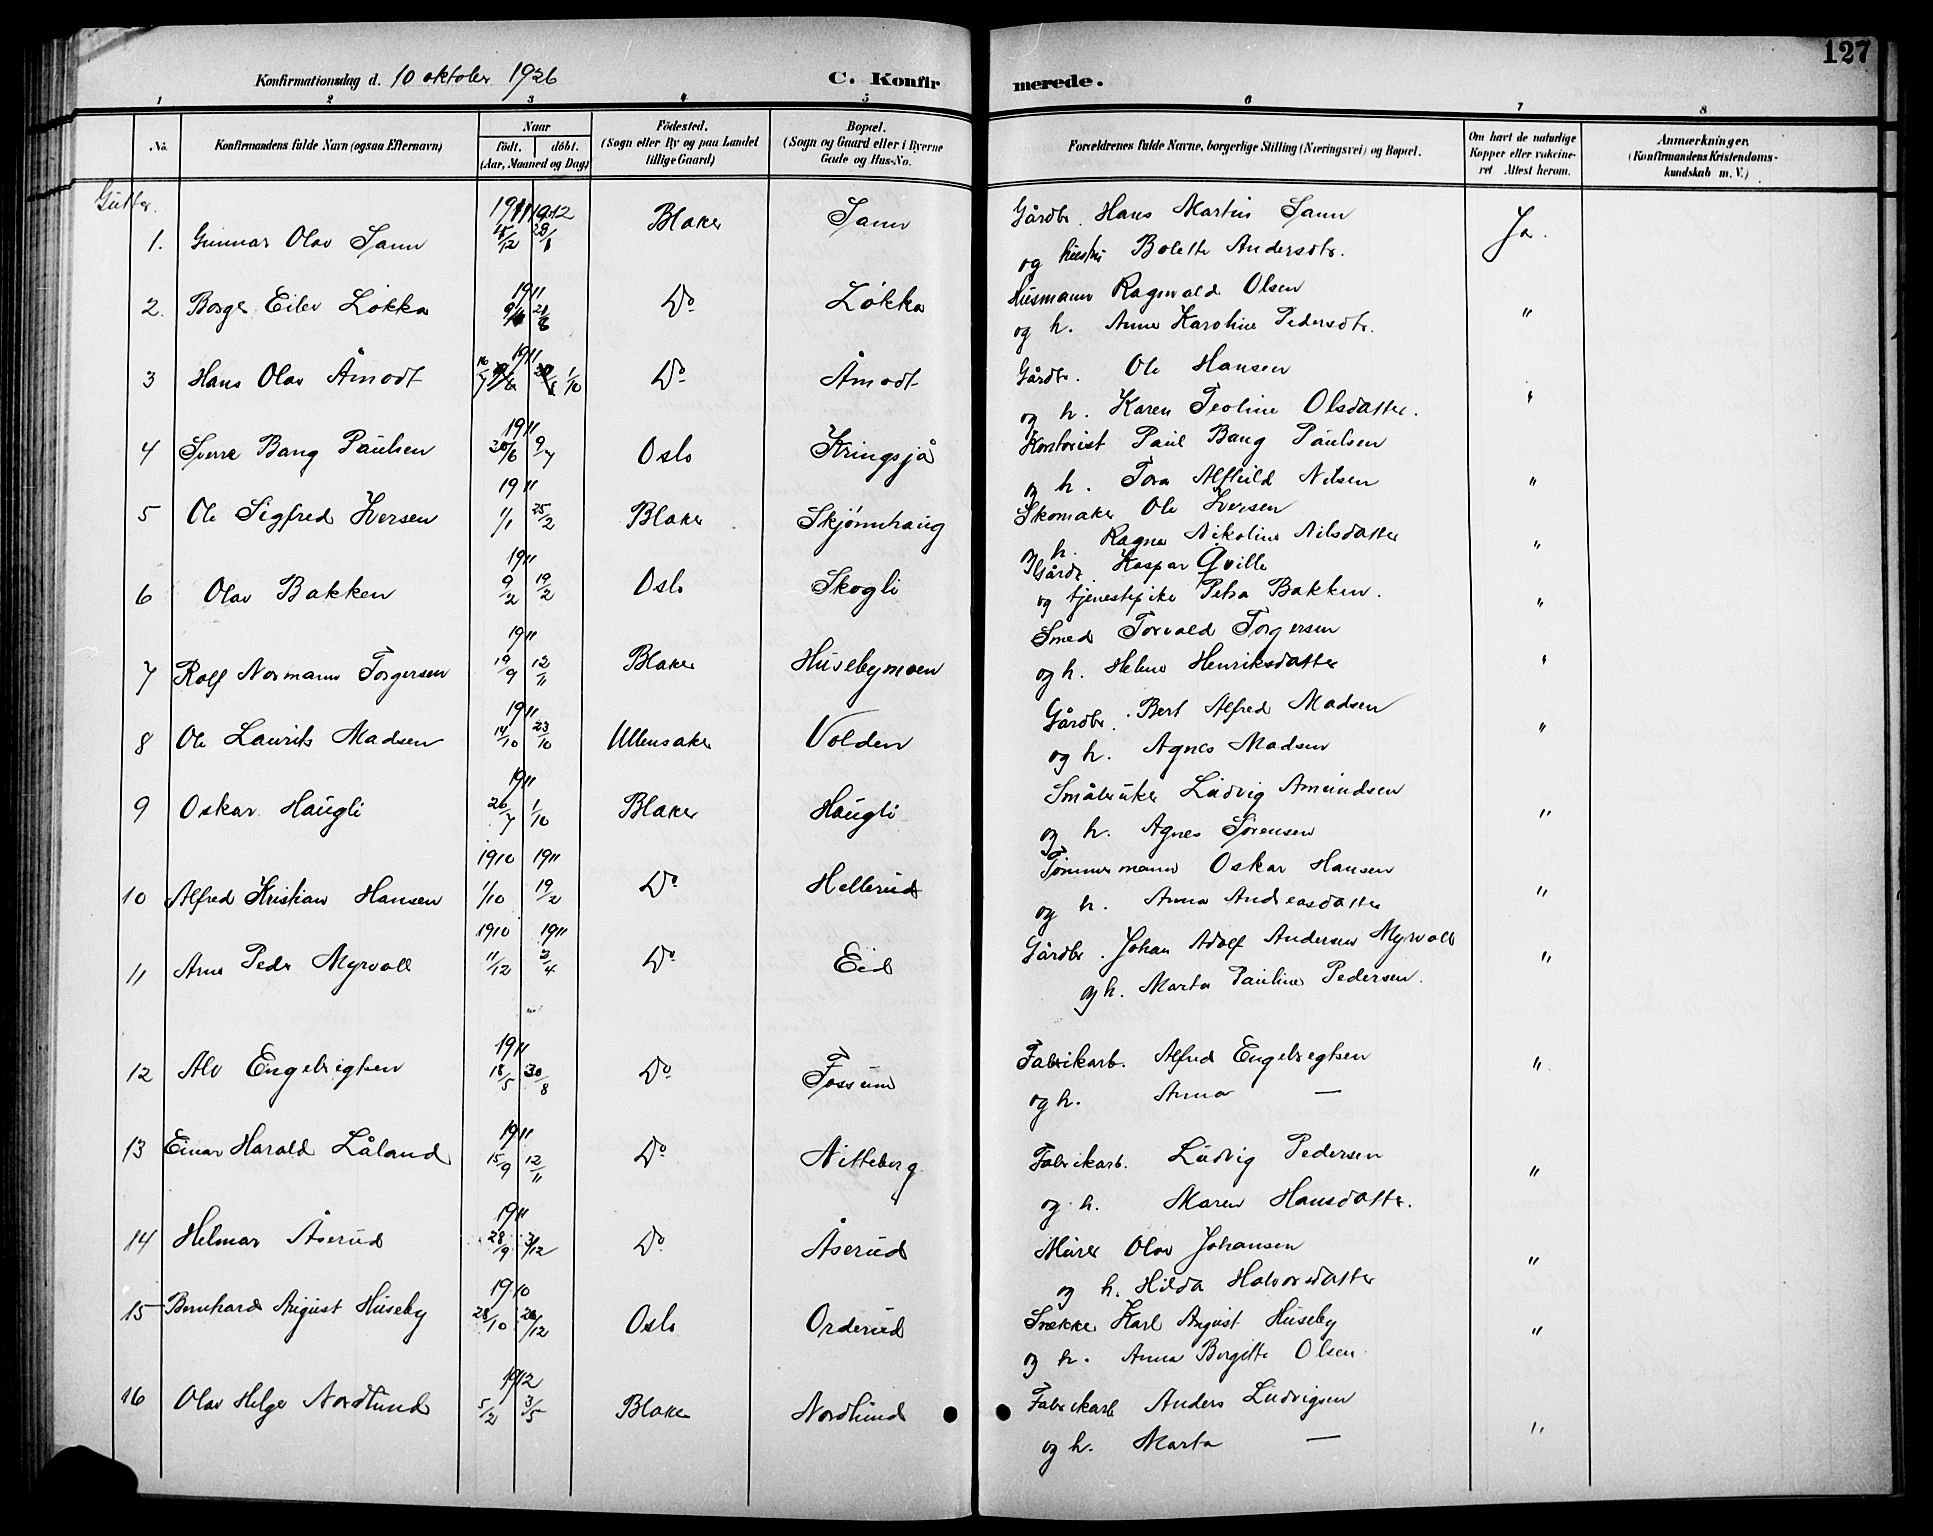 127
Konfirmationsdag d. 10 oktober 1926
C. Konfirmerede.
1 2 3 4 5 6 7 8
No. Konfirmandens fulde Navn (ogsaa Efternavn) Naar født. døbt. (Aar, Maaned og Dag) Fødested. (Sogn eller By og paa Landet tillige Gaard) Bopæl. (Sogn og Gaard eller i Byerne Gade og Hus-No. Forældrenes fulde Navne, borgerlige Stilling (Næringsvei) og Bopæl. Om havt de naturlige Kopper eller vakcineret Attest herom. Anmærkninger. (Konfirmandens Kristendomskundskab m. V.)
Gutter.
1. Gunnar Olav Sann 1911 15/12 1912 28/1 Blaker Sann Gårdbr. Hans Martin Sann Ja.
og hustru Bolette Andersdtr.
2. Borge Eilev Løkka 1911 Do Løkka Husmann Ragnvald Olsen "
og h. Anna Karoline Pedersdtr.
3 Hans Olav Åmodt 1911 16/7 1/10 Do Åmodt Gårdbr. Ole Hansen "
og h. Karen Teoline Olsdatter.
4 Sverre Bang Paulsen 1911 30/6 9/7 Oslo Kringsjå Kontorist Paul Bang Paulsen
og h. Tora Alfhild Nilsen "
5 Ole Sigfred Iversen 1911 1/1 25/2 Blaker Skjønnhaug Skomaker Ole Iversen
og h. Ragna Nikoline Nilsdatter "
6 Olav Bakken 1911 9/2 19/2 Oslo Skogli Gårdbr. Kaspar Qville
og tjenestepike Petra Bakken. "
7 Rolf Normann Torgersen 1911 19/9 12/11 Blaker Husebymoen Smed Torvald Torgersen
og h. Helene Henriksdatter "
8 Ole Laurits Madsen 1911 14/10 23/10 Ullensaker Volden Gårdbr. Bert Alfred Madsen "
og h. Agnes Madsen
9 Oskar Haugli 1911 26/7 1/10 Blaker Haugli Småbruker Ludvig Amundsen "
og h. Agnes Sørensen
10 Alfred Kristian Hansen 1910 1/10 1911 19/2 Do Hellerud Tømmermann Oskar Hansen "
og h. Anna Andreasdatter
11 Arne Peder Myrvold 1910 11/12 1911 2/4 Do Eid Gårdbr. Johan Adolf Andersen Myrvold "
og h. Marta Pauline Pedersen.
12 Alv Engebrigtsen 1911 18/5 30/8 Do Fossum Fabrikarb. Alfred Engebregtsen "
og h. Anna —
13 Einar Harald Låland 1911 15/9 12/11 Do Nitteberg Fabrikarb. Ludvig Pedersen "
og h. Maren Hansdatter.
14 Helmar Åserud 1911 28/9 3/12 Do Åserud Murer Olav Johansen "
og h. Hilda Halvorsdatter
15 Bernhard August Huseby 1910 28/10 26/12 Oslo Orderud Snekker Karl August Huseby "
og h. Anna Birgitte Olsen
16 Olav Helge Nordlund 1912 5/2 3/5 Blaker Nordlund Fabrikarb Anders Ludvigsen "
og h. Marta —